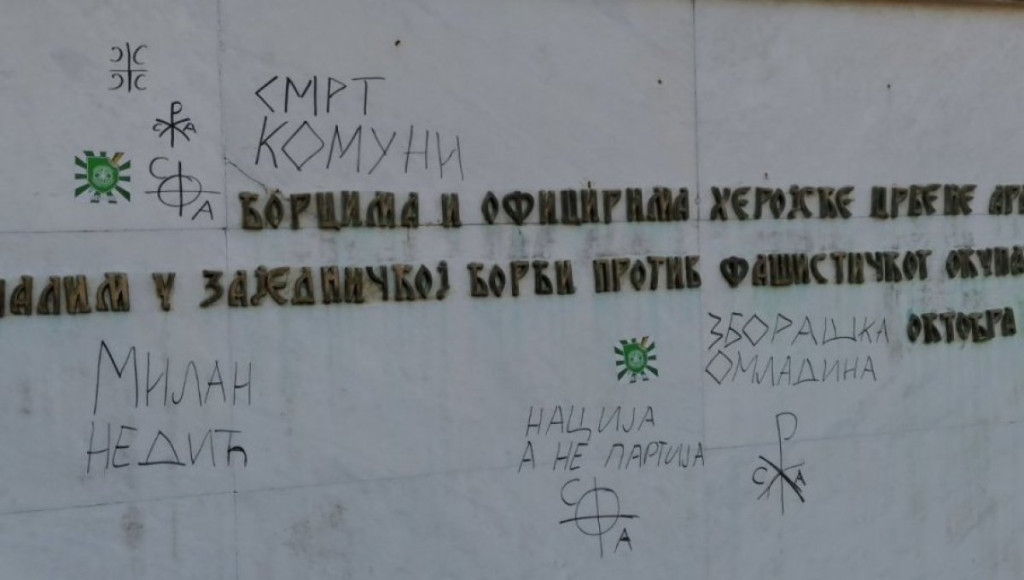 СМРТ
КОМУНИ
С А
С А
БОРЦИМА И ОФИЦИРИМА ХЕРОЈСКЕ ЦРВЕНЕ
АЛИМ У ЗАЈЕДНИЧКОЈ БОРБИ ПРОТИВ ФАШИСТИЧКОГ ОКУПА
ОКТОБРА
ЗБОРАШКА
ОМЛАДИНА
МИЛАН
НЕДИЋ
НАЦИЈА
А НЕ ПАРТИЈА
С А
С А